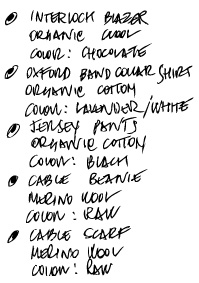 INTERLOCK BLAZER
ORGANIC WOOL
COLOR: CHOCOLATE
OXFORD BAND COLLAR SHIRT
ORGANIC COTTON
COLOR: LAVANDER/WHITE
JERSEY PANTS
ORGANIC COTTON
COLOR: BLACK
CABLE BEANIE
MERINO WOOL
COLOR: RAW
CABLE SCARF
MERINO WOOL
COLOR: RAW